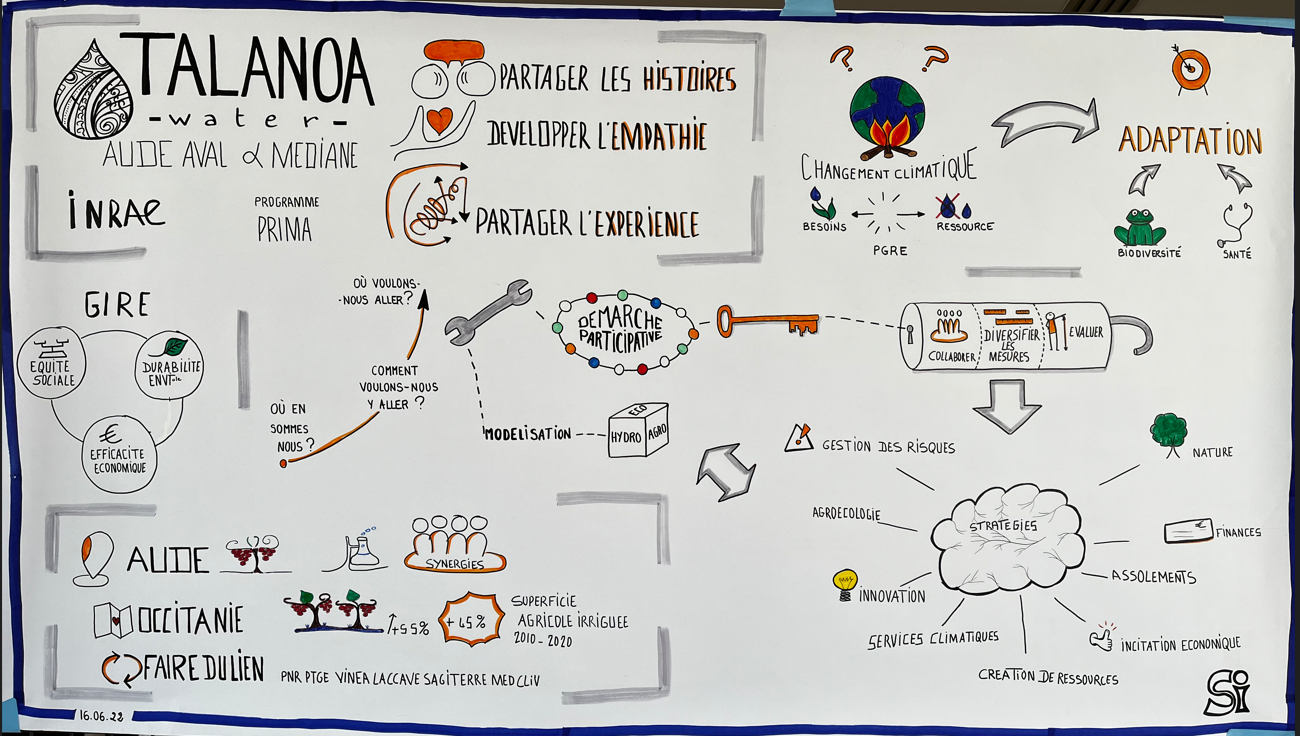 TALANOA
-water-
AUDE AVAL & MEDIANE
INRAE
PROGRAMME
PRIMA
PARTAGER LES HISTOIRES
DEVELOPPER L'EMPATHIE
PARTAGER L'EXPERIENCE
? ?
CHANGEMENT CLIMATIQUE
BESOINS
RESSOURCE
PGRE
ADAPTATION
BIODIVERSITÉ
SANTÉ
GIRE
EQUITE
SOCIALE
DURABILITE
ENVTale
€
EFFICACITE
ECONOMIQUE
OÙ EN
SOMMES
NOUS?
COMMENT
VOULONS-NOUS
Y ALLER ?
OÙ VOULONS-
-NOUS ALLER?
DEMARCHE
PARTICIPATIVE
MODELISATION
ECO
HYDRO
AGRO
COLLABORER
DIVERSIFIER
LES
MESURES
EVALUER
GESTION DES RISQUES
NATURE
AGROECOLOGIE
STRATEGIES
FINANCES
INNOVATION
ASSOLEMENTS
SERVICES CLIMATIQUES
INCITATION ECONOMIQUE
CREATION DE RESSOURCES
AUDE
SYNERGIES
OCCITANIE
+55%
+45%
SUPERFICIE
AGRICOLE IRRIGUEE
2010-2020
FAIRE DU LIEN
PNR PTGE VINEA LACCAVE SAGITERRE MEDCLIV
16.06.22
Si